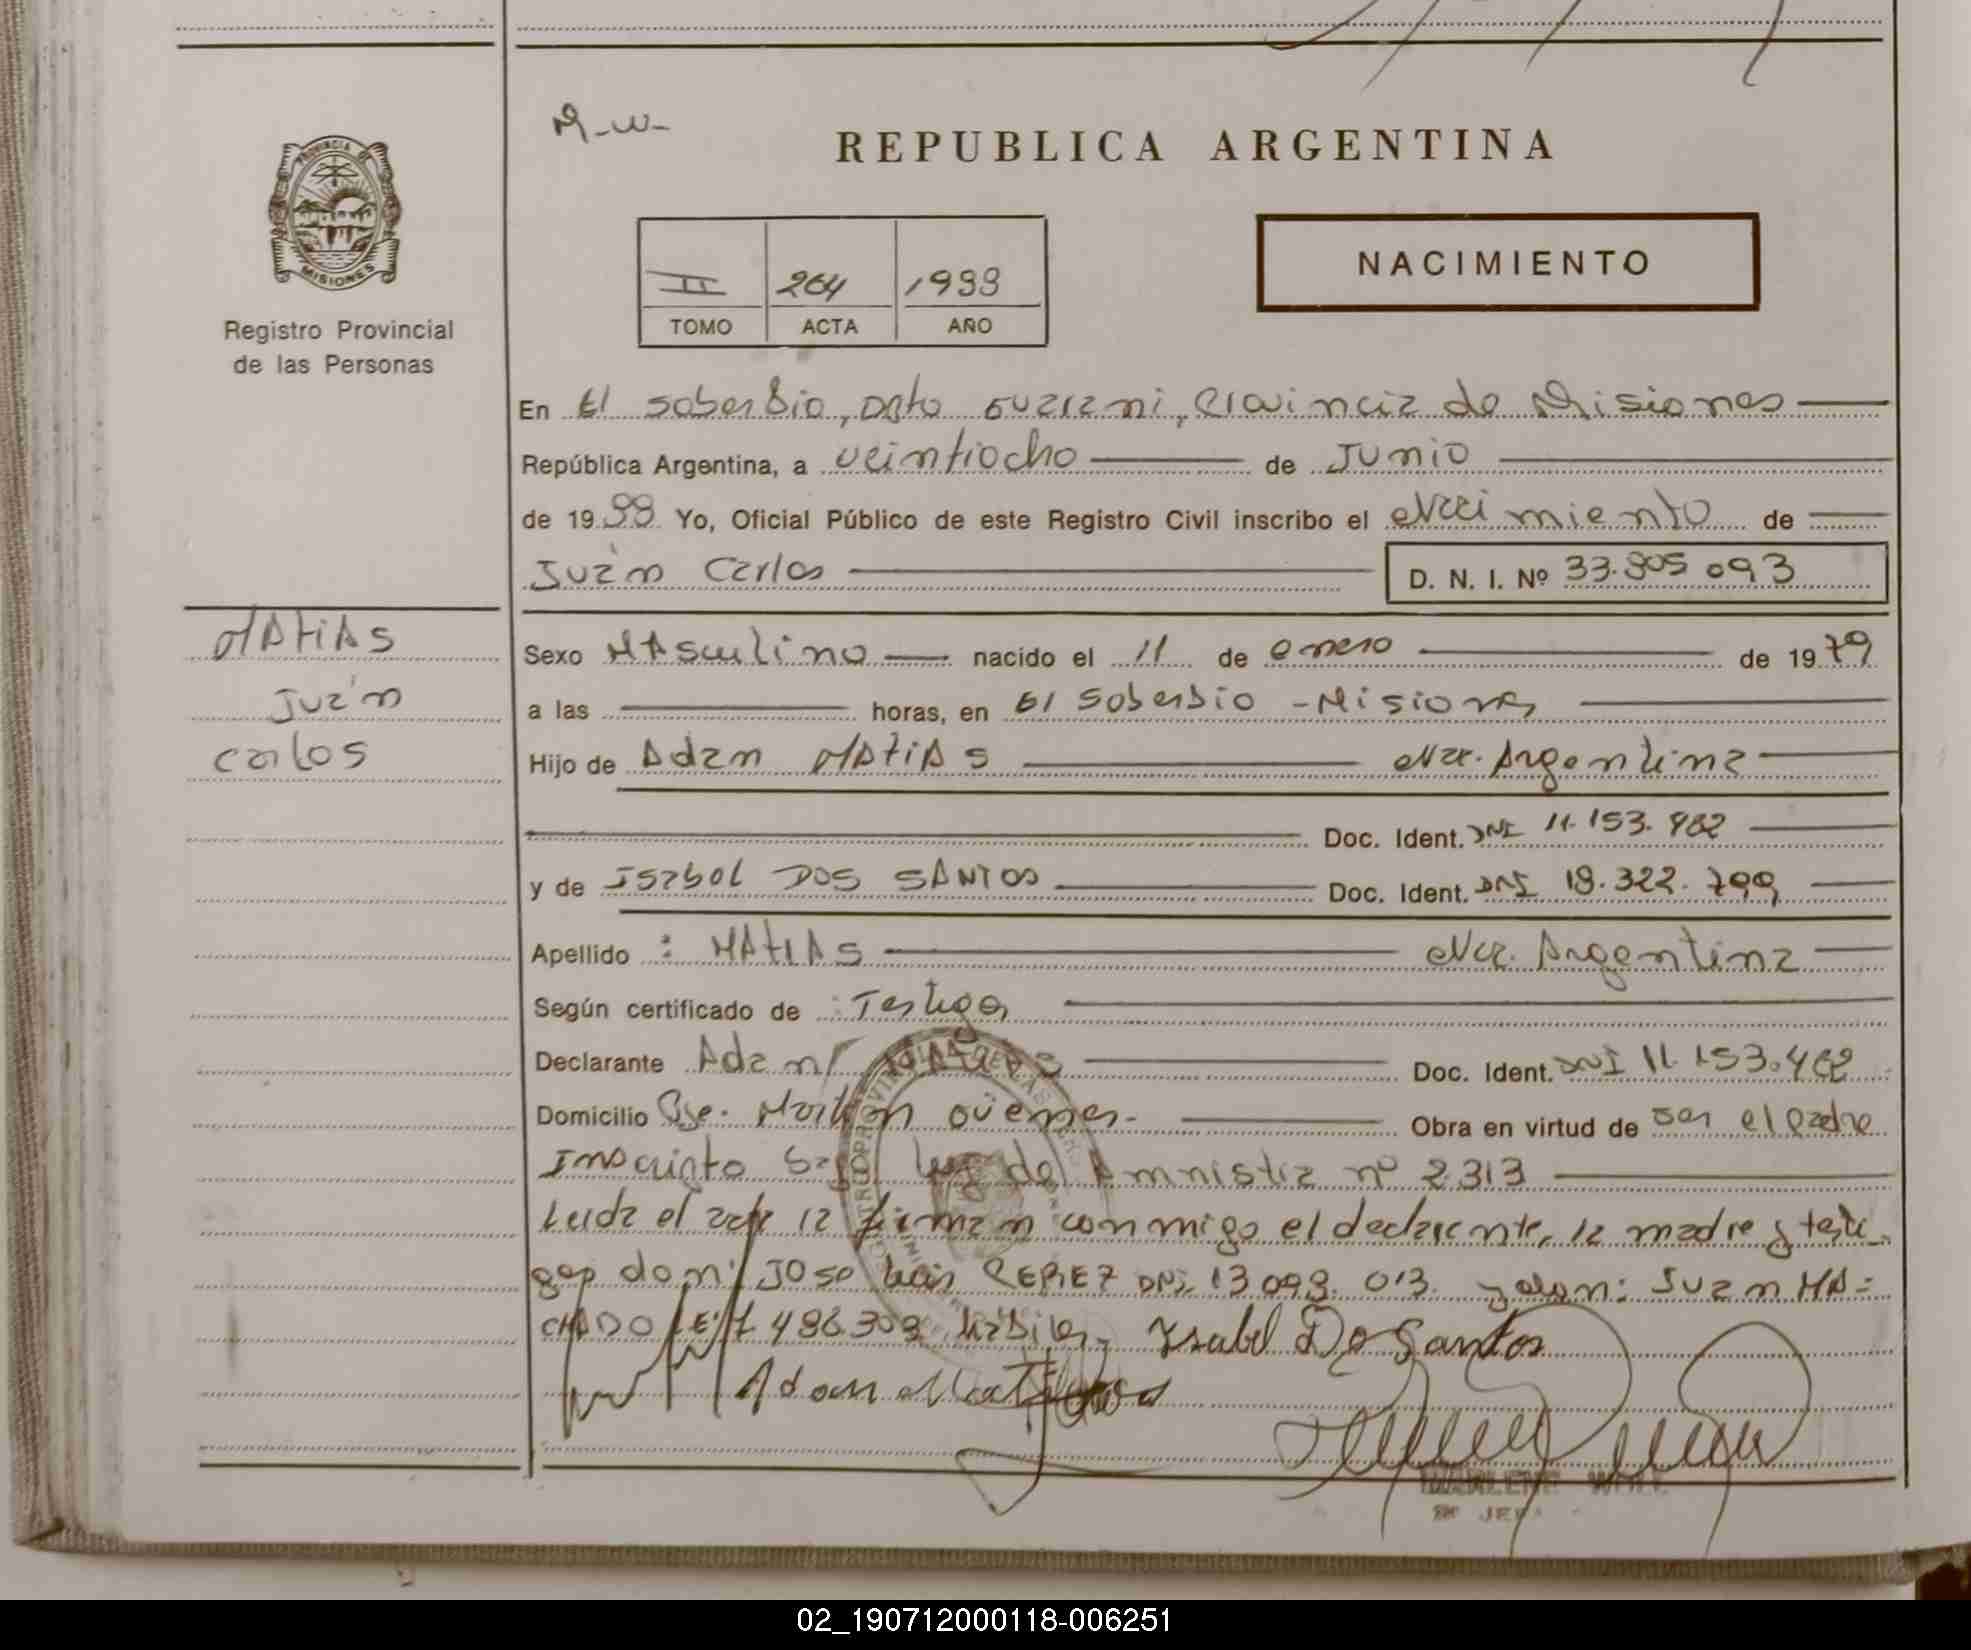 M-W-
REPUBLICA ARGENTINA
PROVINCIA DE
MISIONES
Registro Provincial
de las Personas
II 264
TOMO ACTA AÑO
NACIMIENTO
En El Soberbio, Dpto Guarani, Provincia de Misiones
República Argentina, a veintiocho de Junio
de 19 Yo, Oficial Público de este Registro Civil inscribo el Nacimiento de
Juán Carlos D. N. I. Nº
MATIAS
Juán
Carlos
Sexo MAsculino nacido el 11 de enero de 1979
a las horas, en El Soberbio - Misiones
Hijo de Adan MATIAS Nac. Argentina
Doc. Ident. DNI
y de Isabel DOS SANTOS Doc. Ident. DNI
Apellido : MATIAS Nac. Argentina
Según certificado de : Testigos
Declarante Adan MATIAS Doc. Ident. DNI
Domicilio Obra en virtud de ser el padre
Inscripto bajo ley de Amnistia nº 2313
Leida el acta la firman conmigo el declarante, la madre y testi-
gos don: Jose Luis PEREZ DNI. y don: Juan MA=
CHADO hábiles-
Isabel Do Santos
Adan Matias
MARLENE